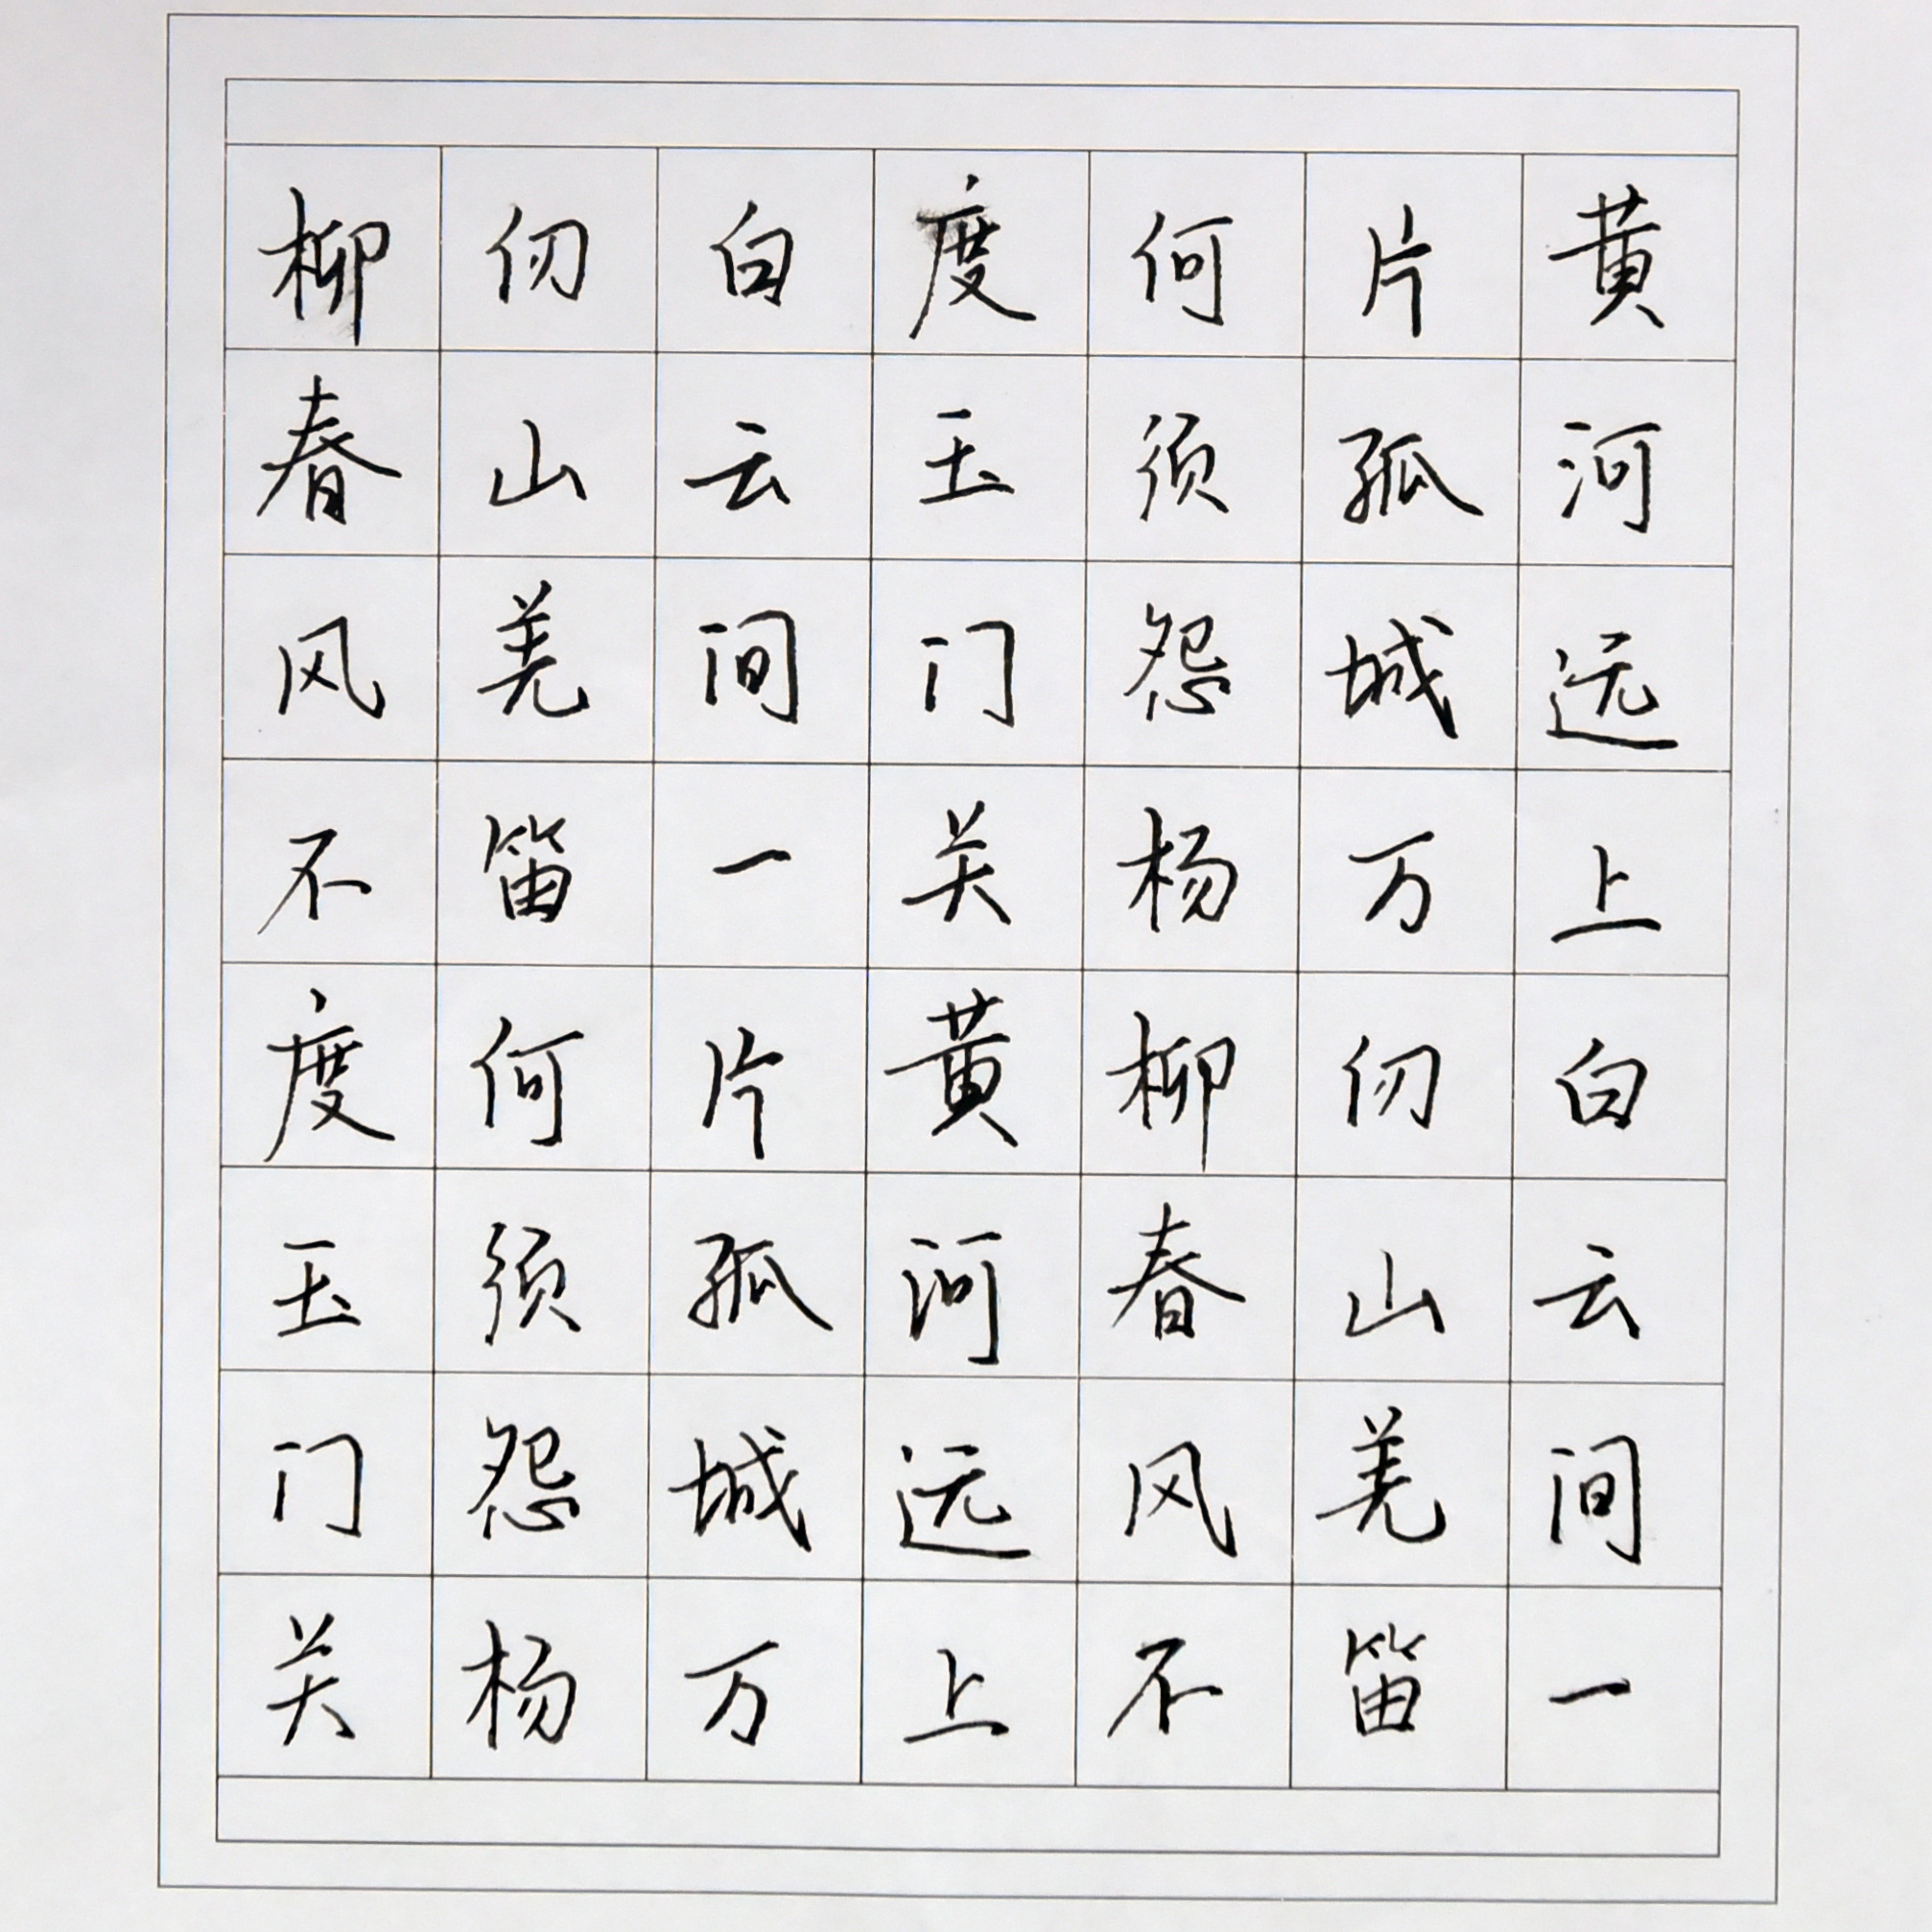 黄河远上白云间一
片孤城万仞山羌笛
何须怨杨柳春风不
度玉门关黄河远上
白云间一片孤城万
仞山羌笛何须怨杨
柳春风不度玉门关